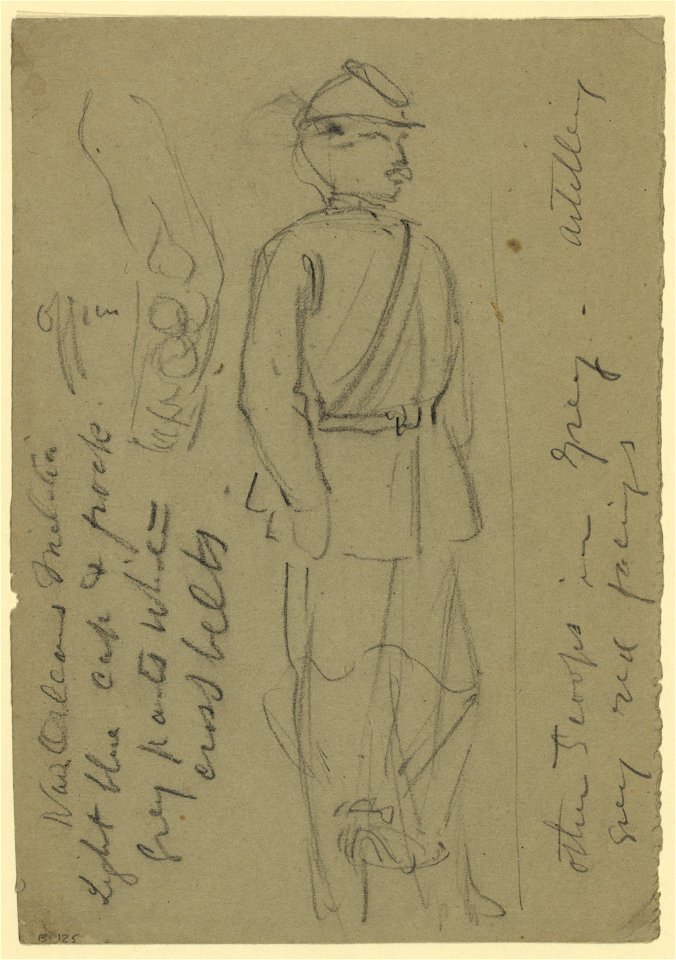 New Orleans Militia
Light blue cap & frock
Grey pants white
cross belts
other troops in grey - artillery
grey red facings
B-125